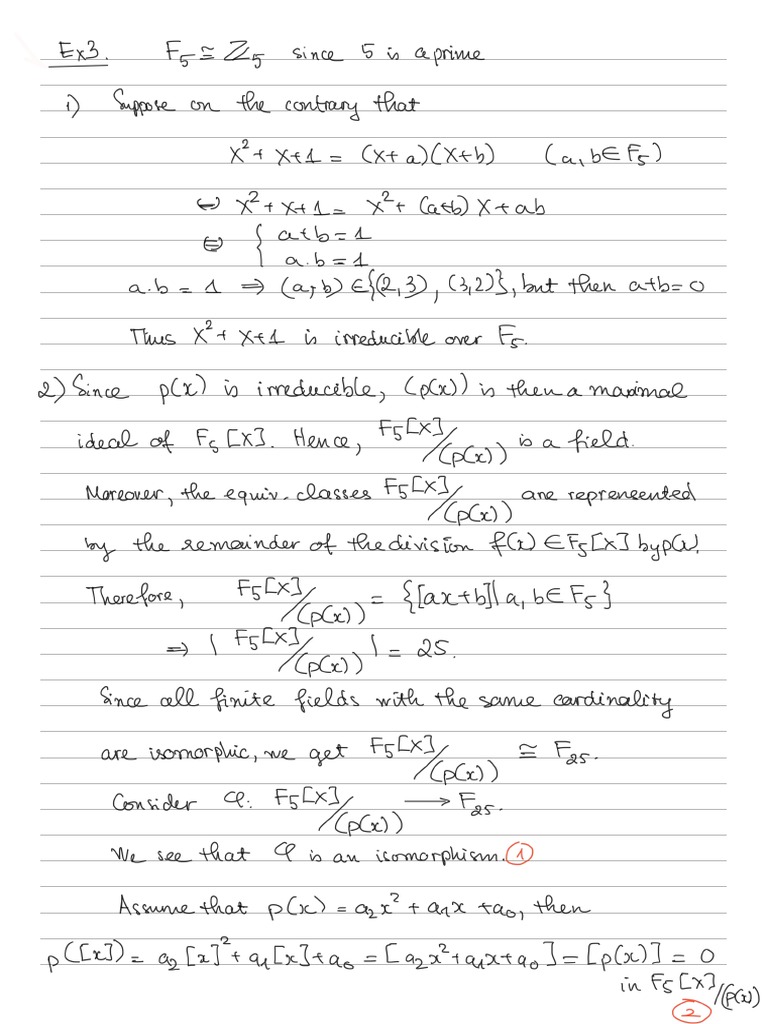 Ex3. F₅ ≅ ℤ₅ since 5 is a prime
1) Suppose on the contrary that
X² + X + 1 = (X + a)(X + b) (a, b ∈ F₅)
⇔ X² + X + 1 = X² + (a+b) X + ab
⇔ { a + b = 1
a.b = 1
a.b = 1 ⇒ (a, b) ∈ {(2,3), (3,2)}, but then a+b = 0
Thus X² + X + 1 is irreducible over F₅.
2) Since p(x) is irreducible, (p(x)) is then a maximal
ideal of F₅[X]. Hence, F₅[X]/(p(x)) is a field.
Moreover, the equiv. classes F₅[X]/(p(x)) are repreneented
by the remainder of the division f(x) ∈ F₅[X] by p(x).
Therefore, F₅[X]/(p(x)) = {[ax+b] | a, b ∈ F₅}
⇒ | F₅[X]/(p(x)) | = 25.
Since all finite fields with the same cardinality
are isomorphic, we get F₅[X]/(p(x)) ≅ F₂₅.
Consider φ: F₅[X]/(p(x)) ⟶ F₂₅.
We see that φ is an isomorphism. ①
Assume that p(x) = a₂x² + a₁x + a₀, then
p([x]) = a₂[x]² + a₁[x] + a₀ = [a₂x² + a₁x + a₀] = [p(x)] = 0
in F₅[X]/(p(x))
②